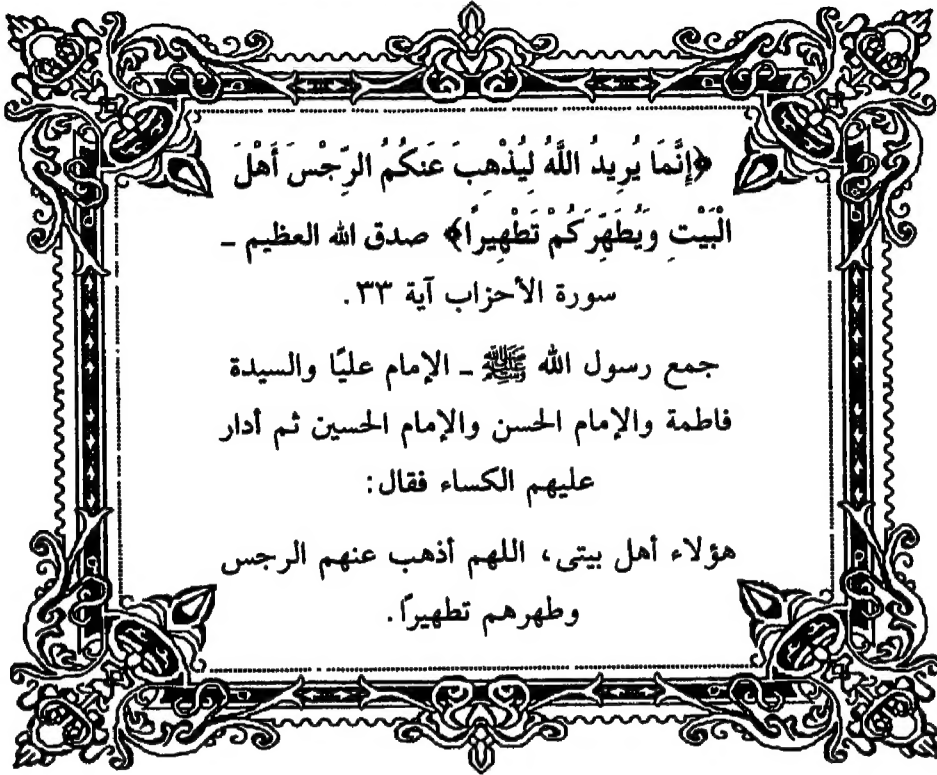 ﴿إِنَّمَا يُرِيدُ اللَّهُ لِيُذْهِبَ عَنكُمُ الرِّجْسَ أَهْلَ
الْبَيْتِ وَيُطَهِّرَكُمْ تَطْهِيراً﴾ صدق الله العظيم ـ
سورة الأحزاب آية ٣٣.
جمع رسول الله ﷺ ـ الإمام عليًا والسيدة
فاطمة والإمام الحسن والإمام الحسين ثم أدار
عليهم الكساء فقال:
هؤلاء أهل بيتى، اللهم أذهب عنهم الرجس
وطهرهم تطهيراً.